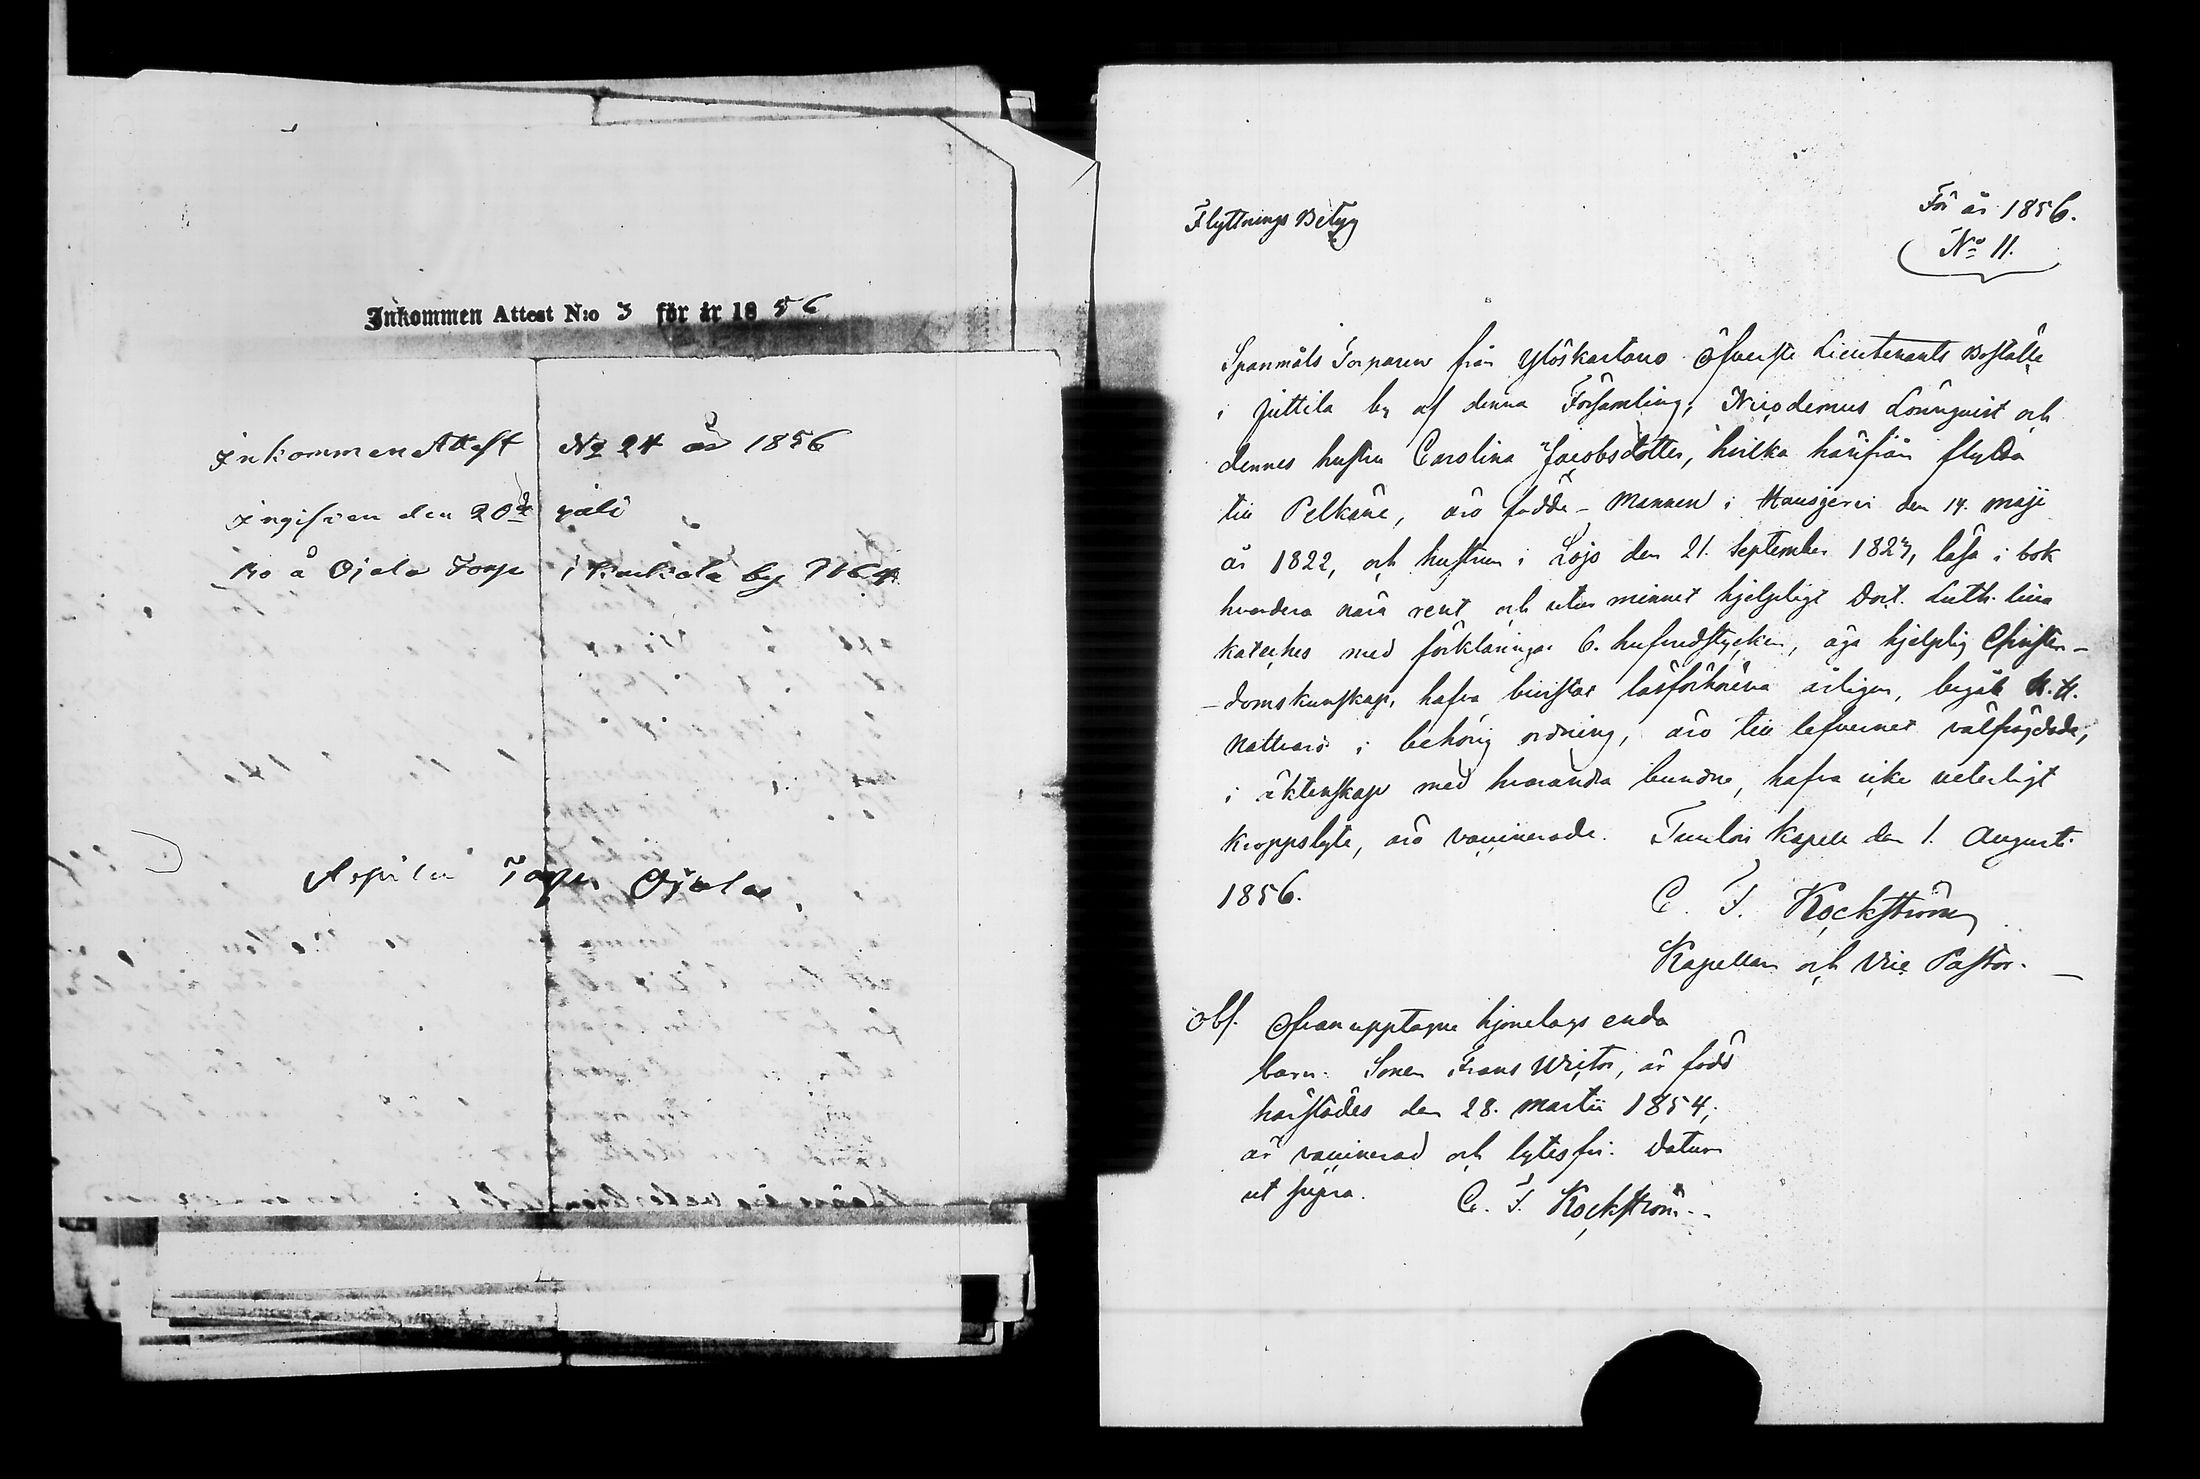 Inkommen Attest N:o 3 för år 1856
Inkommen Attest No 24 år 1856
Ingifven den 20de juli
Bo å Ojala Torp i by
Torp Ojala
Flyttnings Betyg
För år 1856.
No 11.
Spanmåls Torparen från Yłöskartano Öfverste Lieutenants Boställe
i Juttila by af denna Församling, Nicodemus Lönnqvist och
dennes hustru Carolina Jacobsdotter, hvilka härifrån flytta
till Pelkäne, äro födde – Mannen i Hausjervi den 14. Maji
år 1822, och hustrun i Lojo den 21. September 1823, läsa i bok
hvardera nära rent och utur minnet hjelpligt Doct. Luth. lilla
kateches med förklaringar 6. hufvudstycken, äga hjelplig Christen-
-domskunskap, hafva bivistat läsförhören årligen, begått H. H.
Nattvard i behörig ordning, äro till lefvernet välfrägdade,
i äktenskap med hvarandra bundne, hafva icke veterligt
kroppslyte, äro vaccinerade. Tuulois Kapell den 1. Augusti
1856.
C. F. Rockström
Kapellan och Vice Pastor.
Obs. Ofvanupptagne hjonelags enda
barn. Sonen Frans Wictor, är född
härstädes den 28. Martii 1854,
är vaccinerad och lytesfri. Datum
ut supra. C. F. Rockström